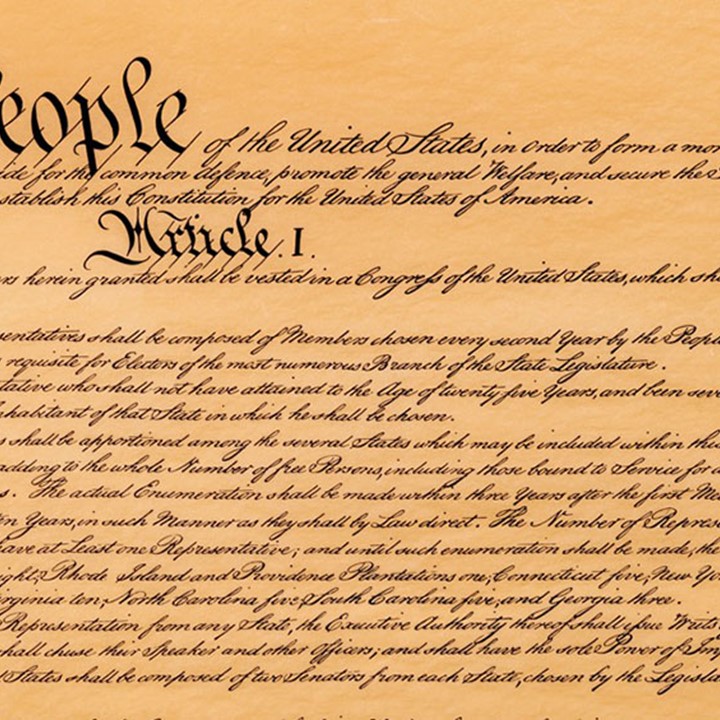 People of the United States, in Order to form a mor
ide for the common defence, promote the general Welfare, and secure the
stablish this Constitution for the United States of America.
Article. I.
rs herein granted shall be vested in a Congress of the United States, which sha
sentatives shall be composed of Members chosen every second Year by the Peopl
requisite for Electors of the most numerous Branch of the State Legislature.
tative who shall not have attained to the Age of twenty five Years, and been seve
nhabitant of that State in which he shall be chosen.
s shall be apportioned among the several States which may be included within this
adding to the whole Number of free Persons, including those bound to Service for a
s. The actual Enumeration shall be made within three Years after the first Me
en Years, in such Manner as they shall by Law direct. The Number of Repres
have at Least one Representative; and until such enumeration shall be made, the
ight, Rhode Island and Providence Plantations one, Connecticut five, New Yo
irginia ten, North Carolina five, South Carolina five, and Georgia three.
Representation from any State, the Executive Authority thereof shall issue Writs
shall chuse their Speaker and other Officers; and shall have the sole Power of Imp
States shall be composed of two Senators from each State, chosen by the Legisla